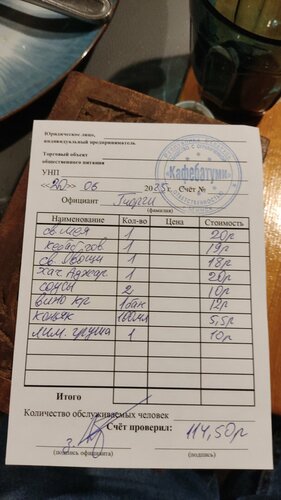 Юридическое лицо,
индивидуальный предприниматель
Торговый объект
общественного питания
УНП
«20» 06 2025 г. Счёт №
Официант Гиорги
(фамилия)
Наименование Кол-во Цена Стоимость
св. шея 1 20р
1 19р
св. Овощи 1 18р
хач. Аджар. 1 20р
соусы 2 10р
вино кр 1бок 12р
коньяк 100мл 5,5р
лим. груша 1 10р
Итого
Количество обслуживаемых человек
Счёт проверил: 114,50р
(подпись официанта) (подпись)
«Кафебатуми»